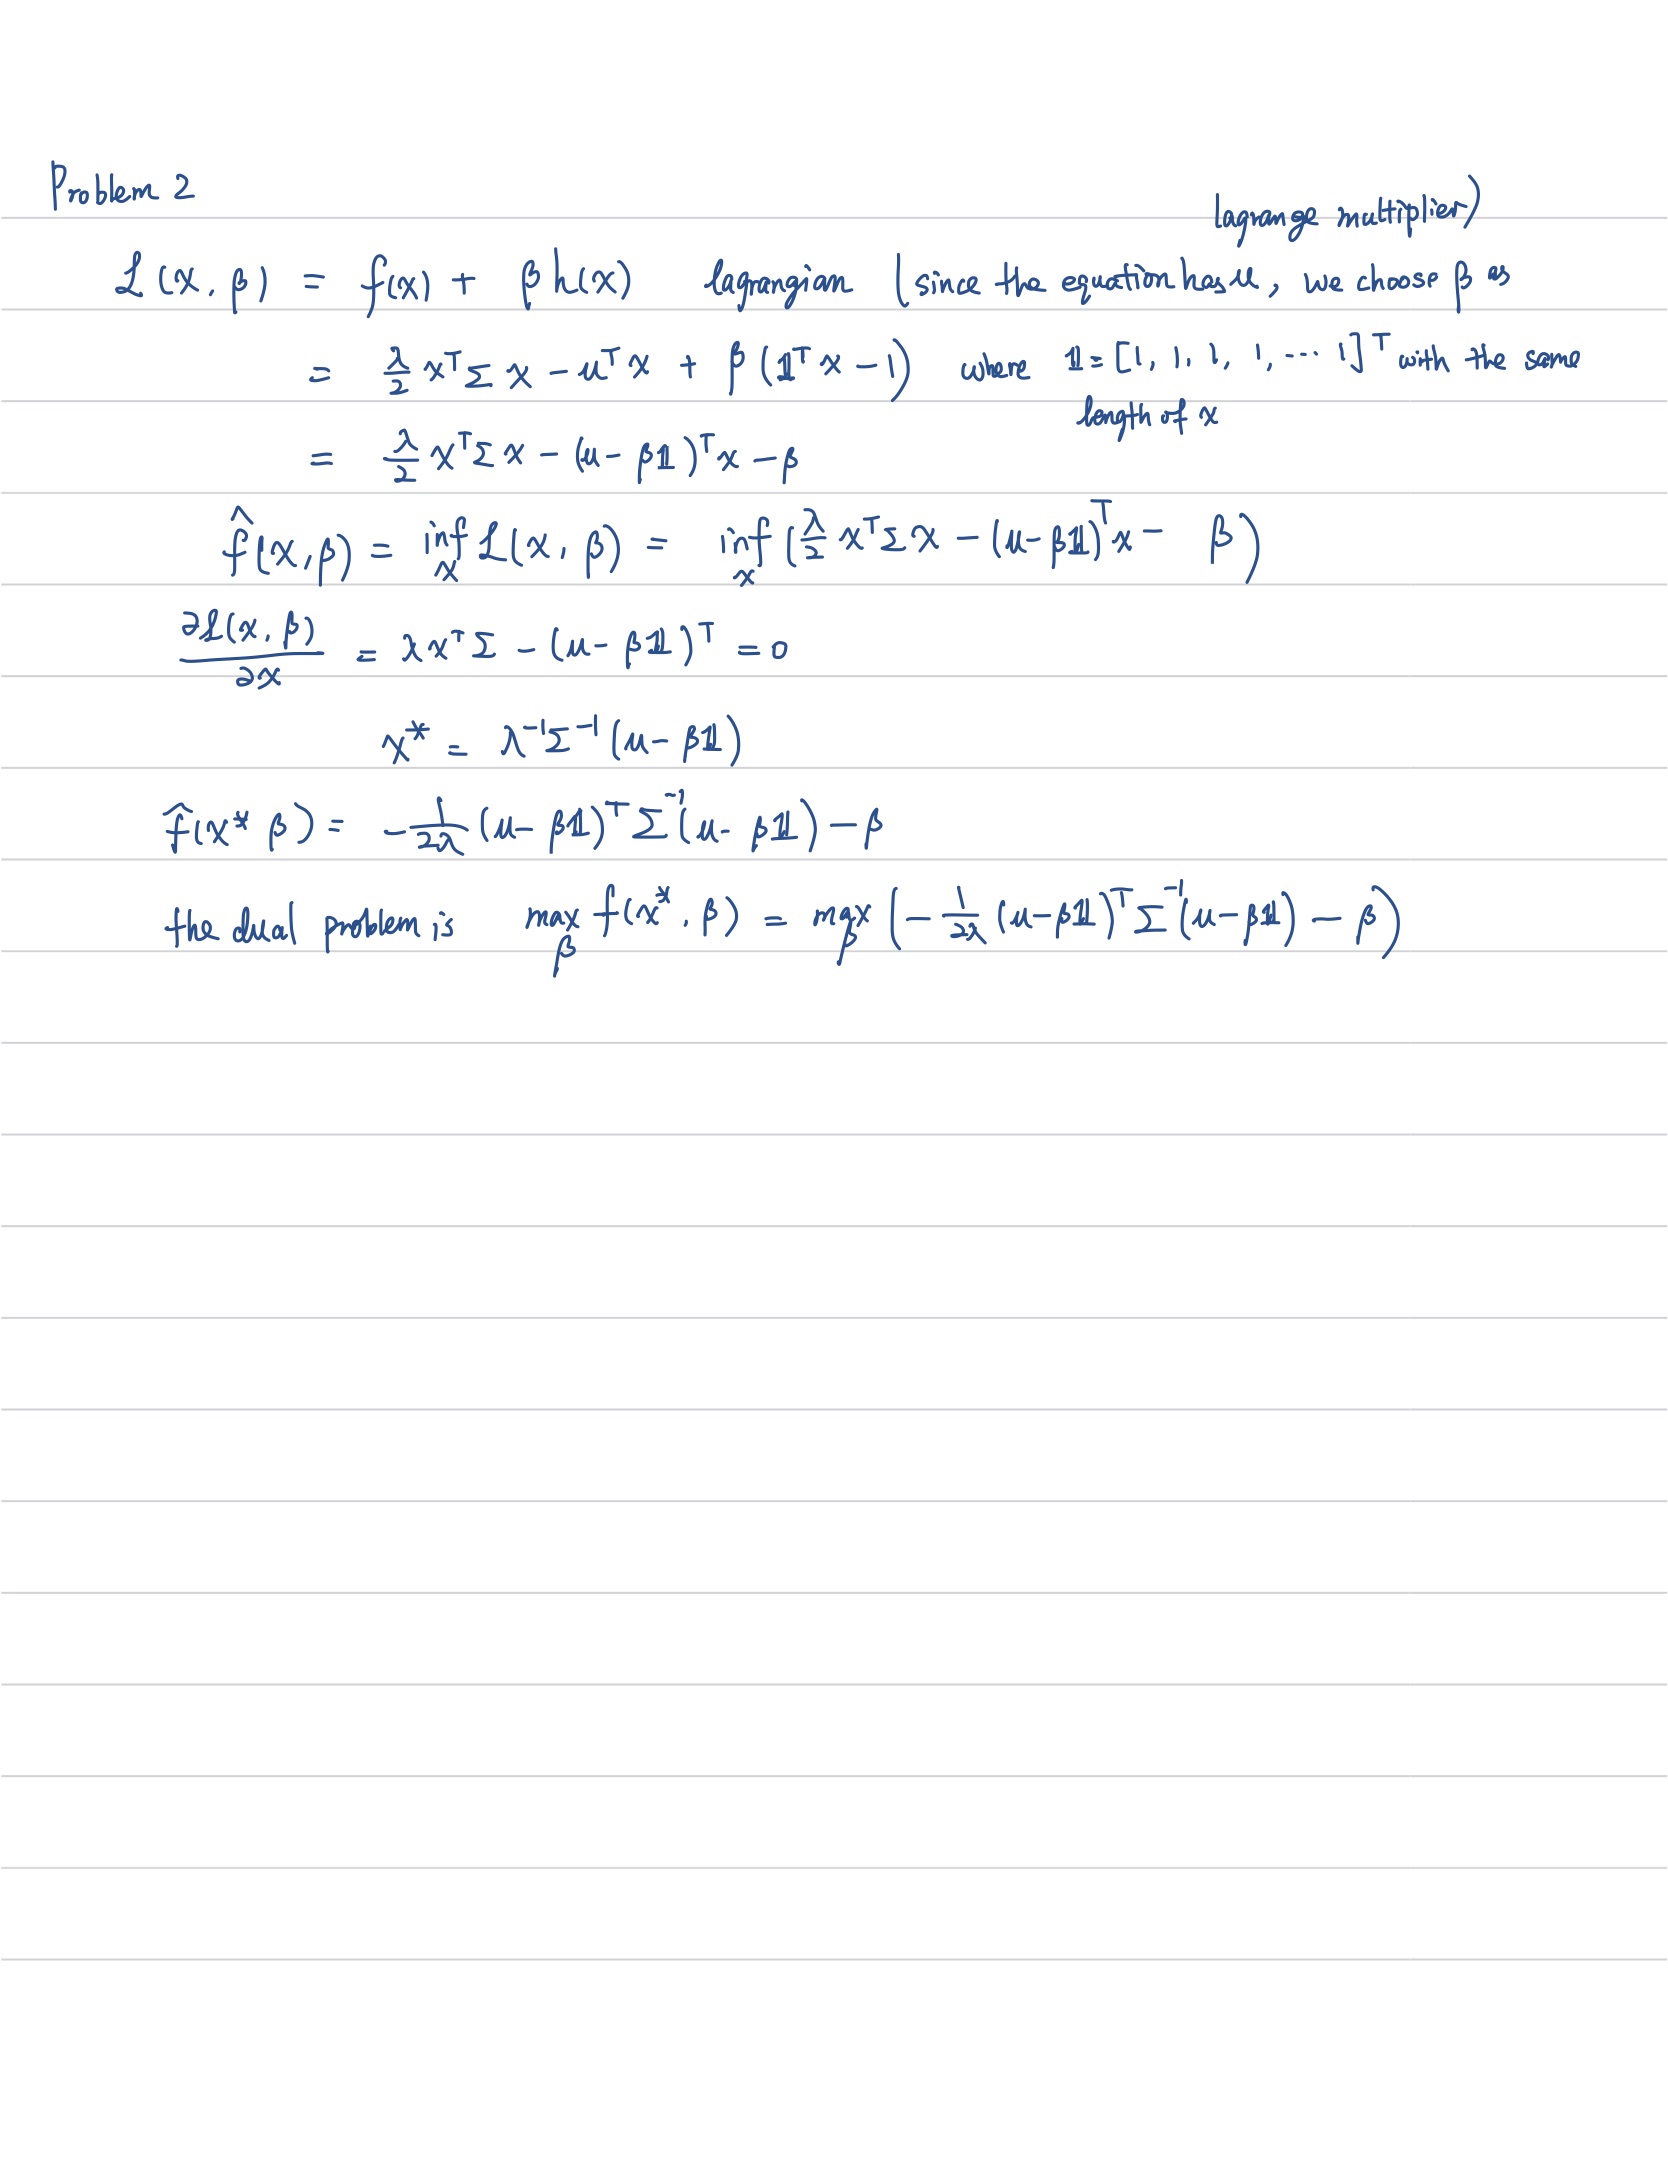 Problem 2
ℒ(x, β) = f(x) + β h(x) lagrangian (since the equation has μ, we choose β as lagrange multiplier)
= λ/2 xᵀΣx − μᵀx + β(𝟙ᵀx − 1) where 𝟙 = [1, 1, 1, 1, ... 1]ᵀ with the same
length of x
= λ/2 xᵀΣx − (μ − β𝟙)ᵀx − β
f̂(x, β) = inf_x ℒ(x, β) = inf_x (λ/2 xᵀΣx − (μ − β𝟙)ᵀx − β)
∂ℒ(x, β)/∂x = λxᵀΣ − (μ − β𝟙)ᵀ = 0
x* = λ⁻¹Σ⁻¹(μ − β𝟙)
f̂(x* β) = −1/2λ (μ − β𝟙)ᵀΣ⁻¹(μ − β𝟙) − β
the dual problem is max_β f(x*, β) = max_β (−1/2λ (μ − β𝟙)ᵀΣ⁻¹(μ − β𝟙) − β)